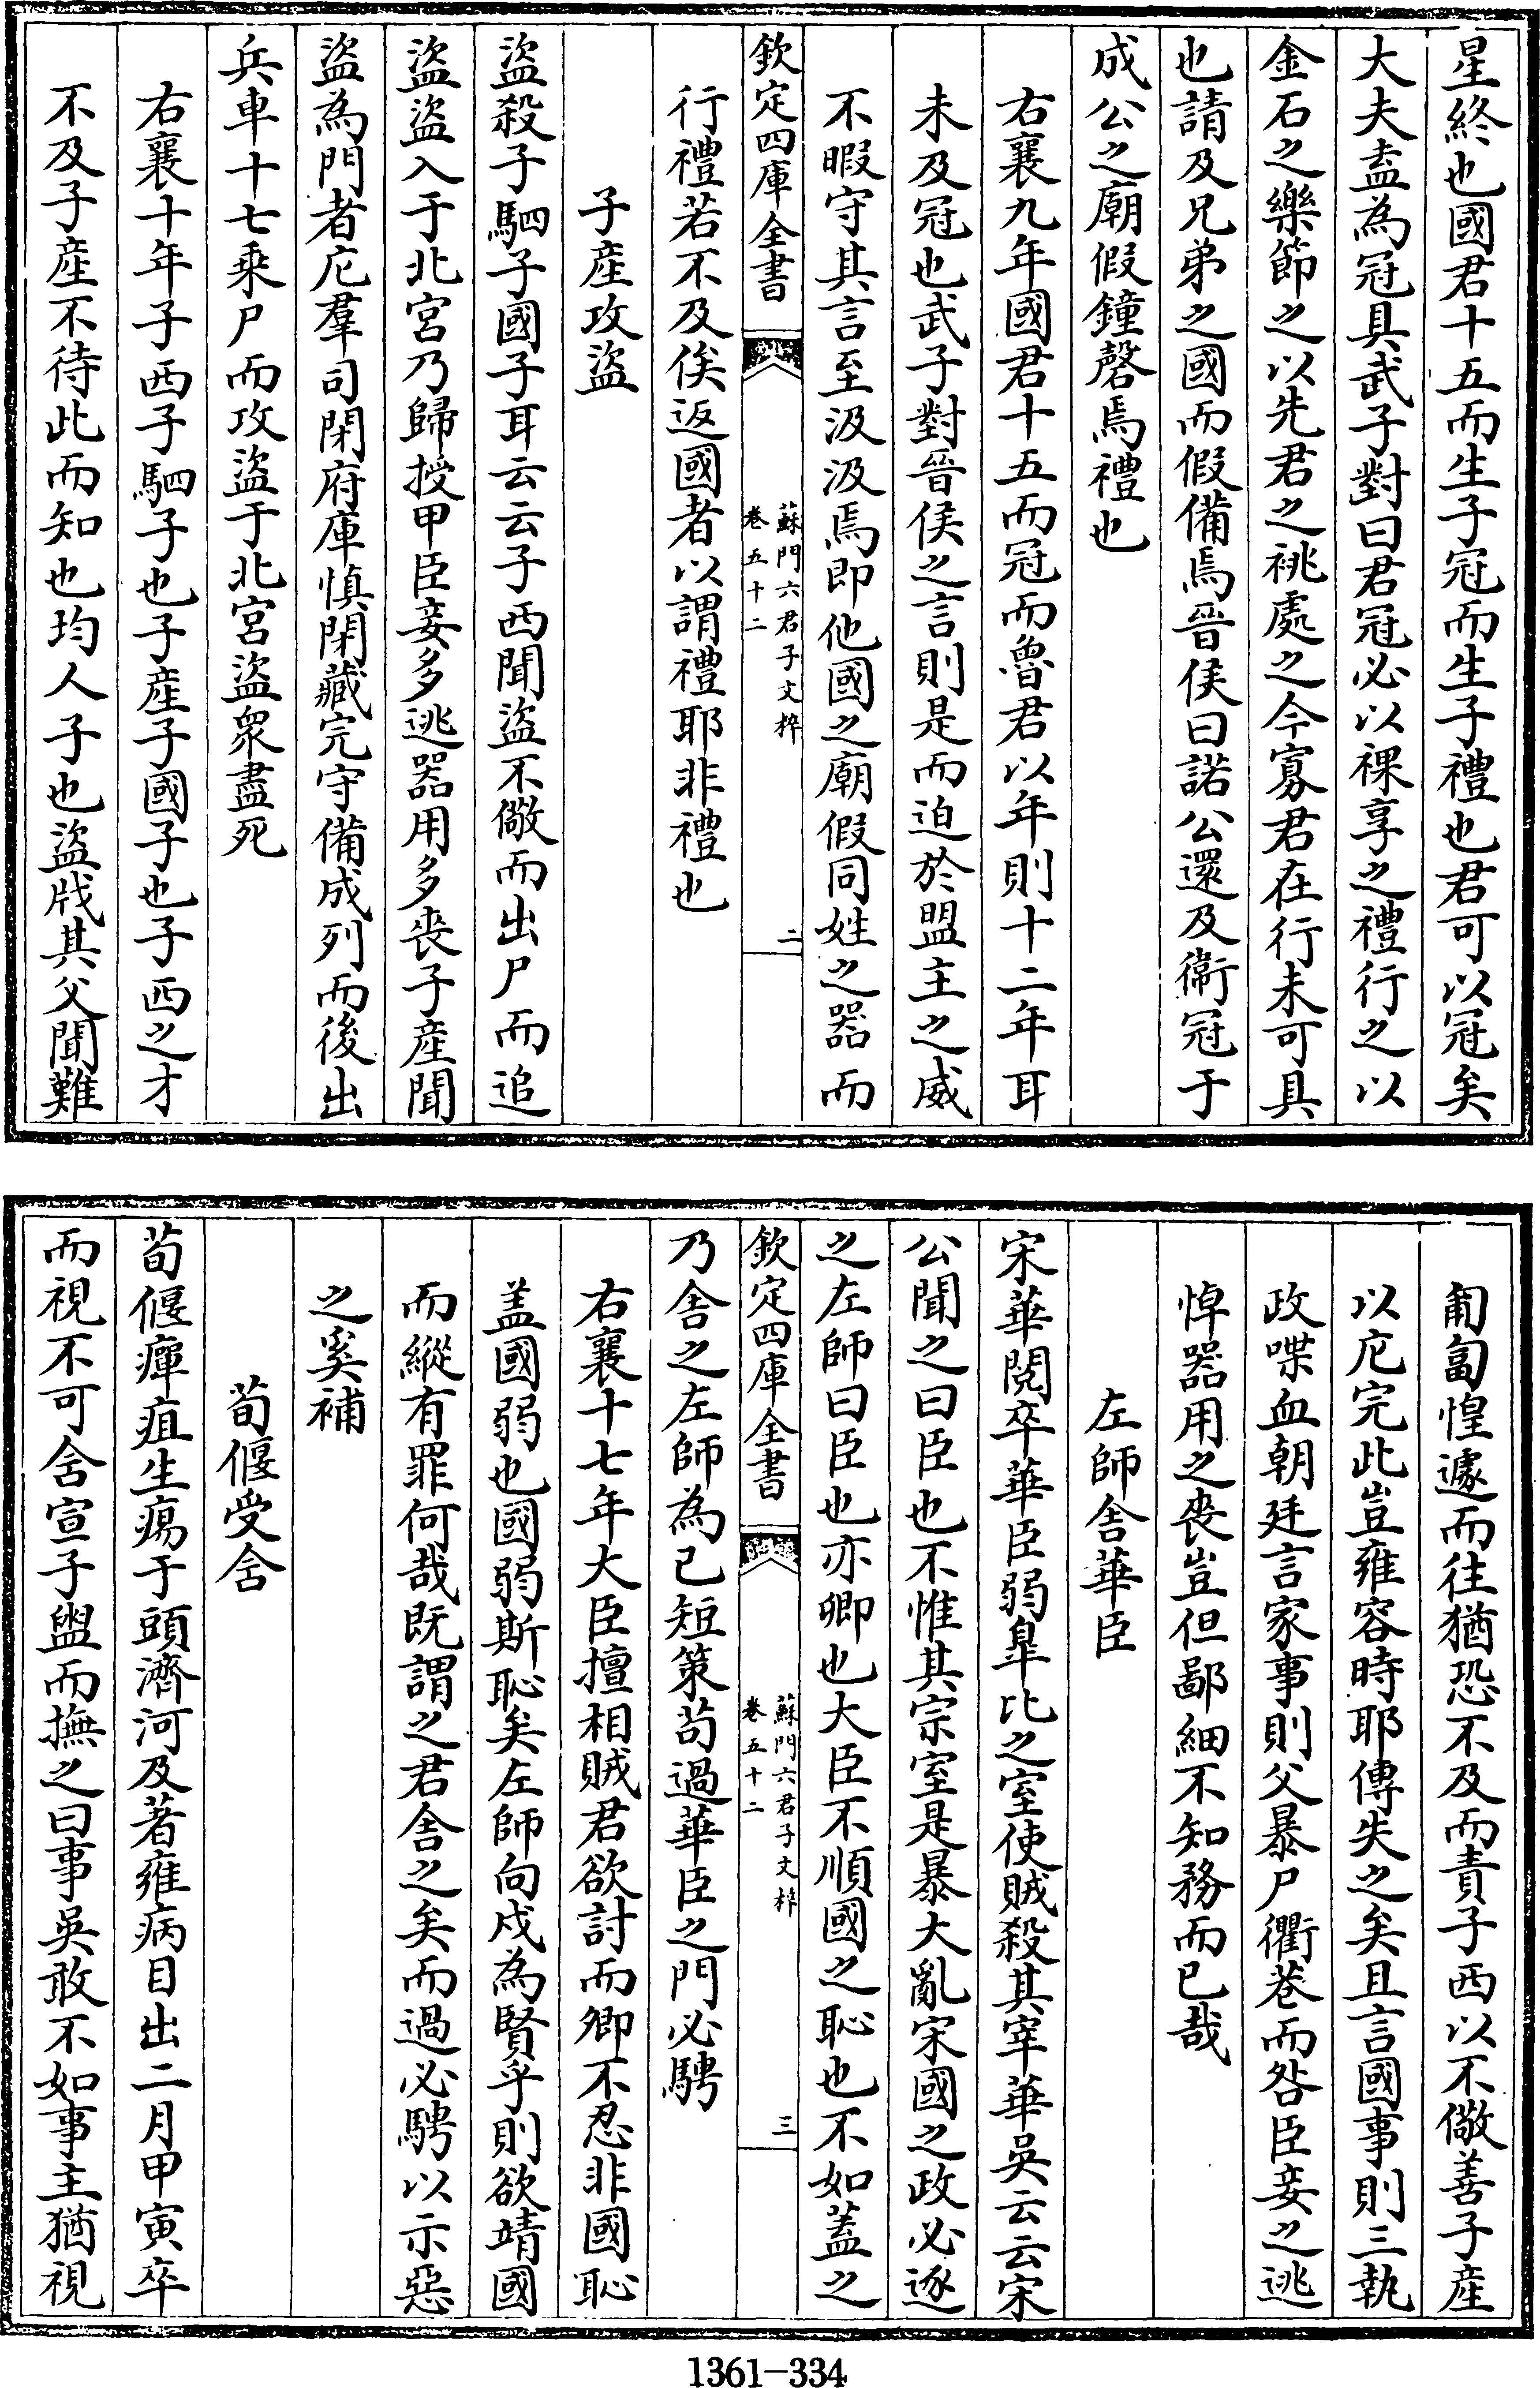 星終也國君十五而生子冠而生子禮也君可以冠矣
大夫盍為冠具武子對曰君冠必以祼享之禮行之以
金石之樂節之以先君之祧處之今寡君在行未可具
也請及兄弟之國而假備焉晉侯曰諾公還及衛冠于
成公之廟假鐘磬焉禮也
右襄九年國君十五而冠而魯君以年則十二年耳
未及冠也武子對晉侯之言則是而迫於盟主之威
不暇守其言至汲汲焉即他國之廟假同姓之器而
欽定四庫全書
蘇門六君子文粹
卷五十二
二
行禮若不及俟返國者以謂禮耶非禮也
子產攻盜
盜殺子駟子國子耳云云子西聞盜不儆而出尸而追
盜盜入于北宮乃歸授甲臣妾多逃器用多喪子產聞
盜為門者庀羣司閉府庫慎閉藏完守備成列而後出
兵車十七乘尸而攻盜于北宮盜眾盡死
右襄十年子西子駟子也子產子國子也子西之才
不及子產不待此而知也均人子也盜戕其父聞難
匍匐惶遽而往猶恐不及而責子西以不儆善子產
以庀完此豈雍容時耶傳失之矣且言國事則三執
政喋血朝廷言家事則父暴尸衢巷而咎臣妾之逃
悼器用之喪豈但鄙細不知務而已哉
左師舍華臣
宋華閱卒華臣弱臯比之室使賊殺其宰華吳云云宋
公聞之曰臣也不惟其宗室是暴大亂宋國之政必逐
之左師曰臣也亦卿也大臣不順國之恥也不如蓋之
欽定四庫全書
蘇門六君子文粹
卷五十二
三
乃舍之左師為已短策苟過華臣之門必騁
右襄十七年大臣擅相賊君欲討而卿不忍非國恥
盖國弱也國弱斯恥矣左師向戌為賢乎則欲靖國
而縱有罪何哉既謂之君舍之矣而過必騁以示惡
之奚補
荀偃受含
荀偃癉疽生瘍于頭濟河及著雍病目出二月甲寅卒
而視不可含宣子盥而撫之曰事吳敢不如事主猶視
1361-334